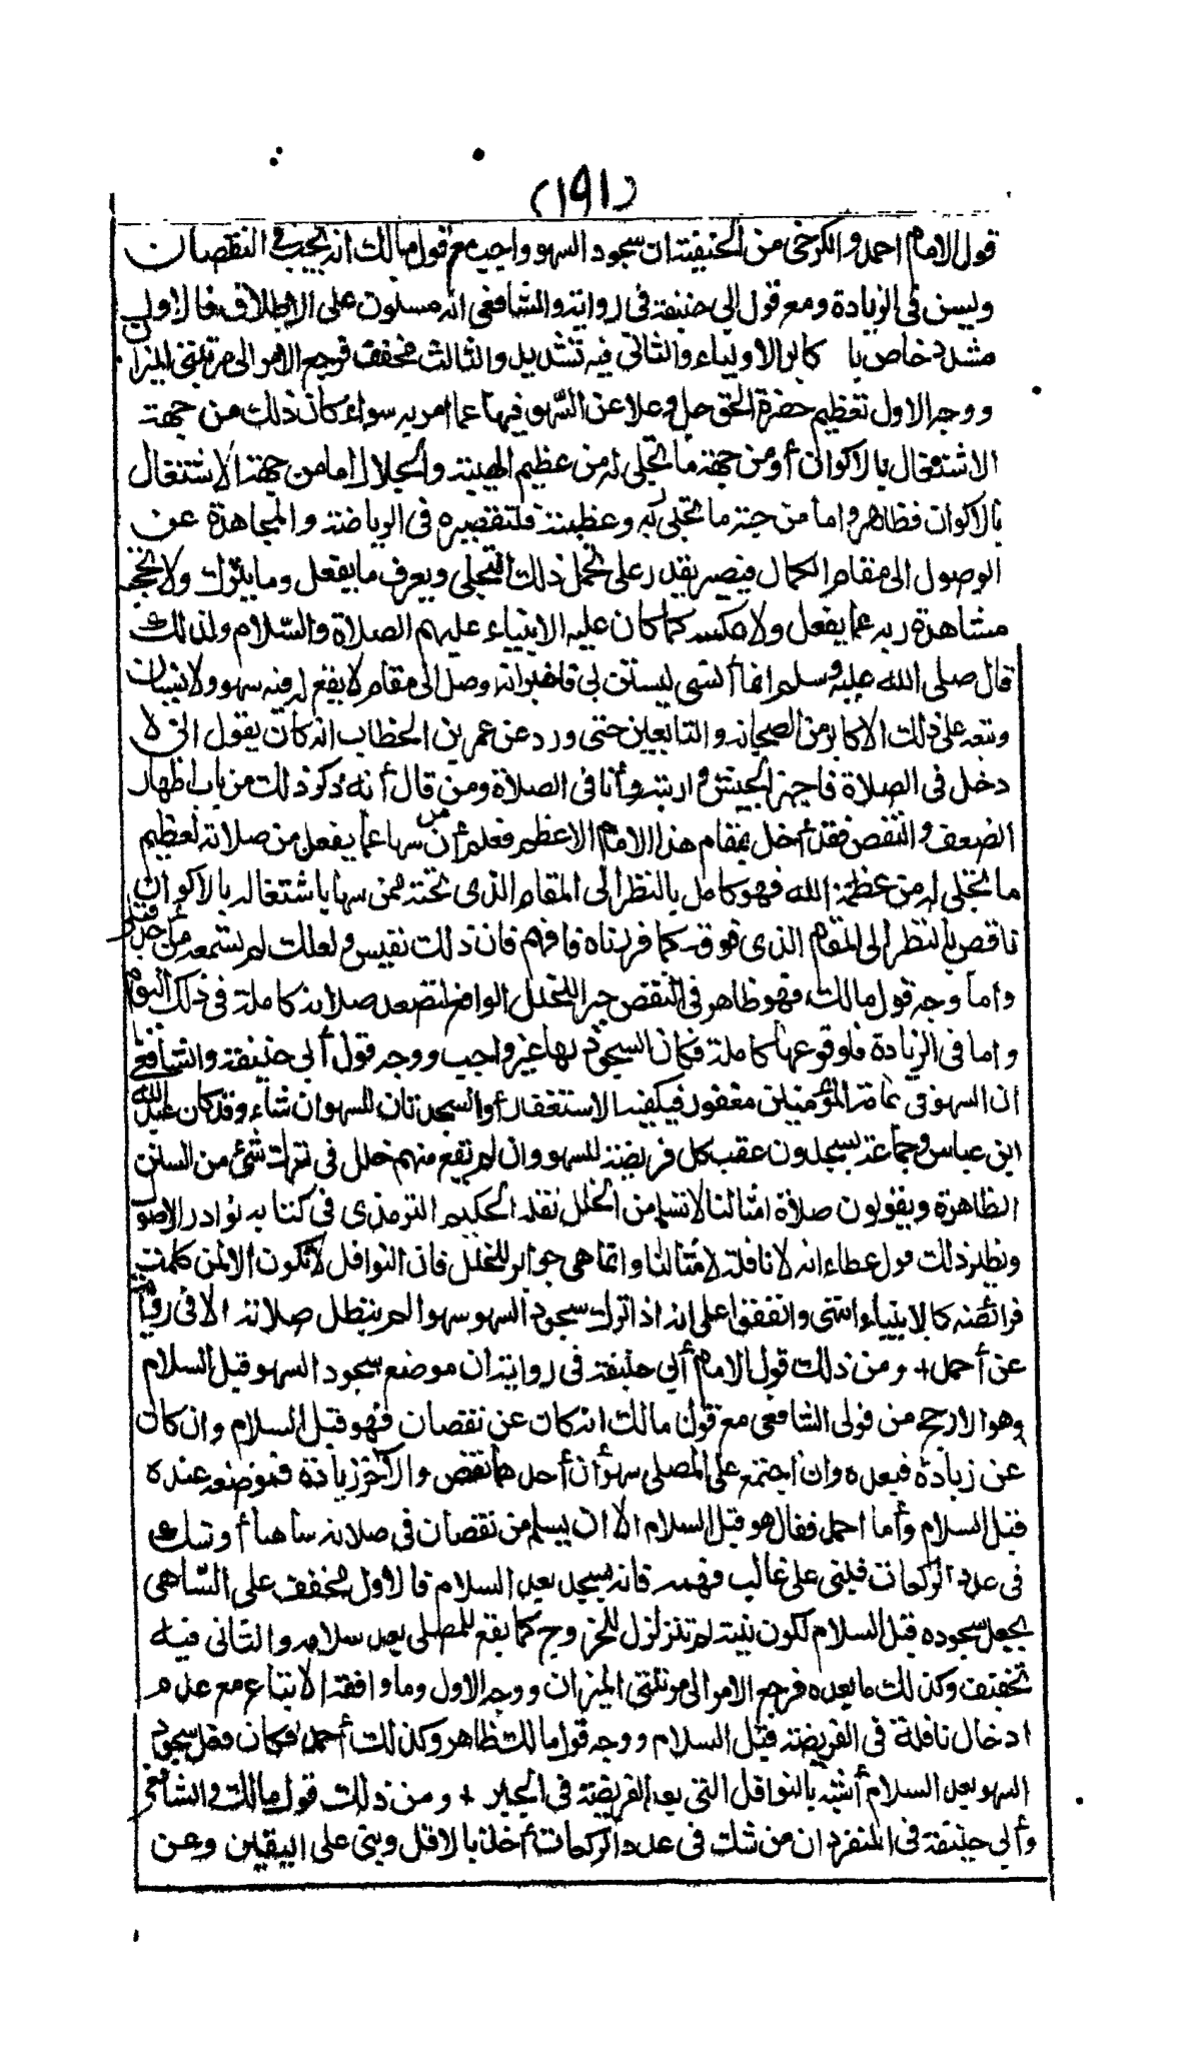 (١٩١)
قول الامام احمد والكرخى من الحنيفية ان سجود السهو واجب مع قول مالك انه يجب فى النقصان
ويسن فى الزيادة ومع قول ابى حنيفة فى رواية والشافعى انه مسنون على الاطلاق فالاول
مشدد خاص با كابر الاولياء والثانى فيه تشديد والثالث مخفف فرجع الامر الى مرتبتى الميزان
ووجه الاول تعظيم حضرة الحق جل وعلا عن السهو فيها عما امر به سواء كان ذلك من جهة
الاشتغال بالاكوان أو من جهة ما تجلى له من عظيم الهيبة والجلال اما من جهة الاشتغال
بالاكوان فظاهر واما من جهة ما تجلى له وعظمته فلتقصيره فى الرياضة والمجاهدة عن
الوصول الى مقام الكمال فيصير يقدر على تحمل ذلك التجلى ويعرف ما يفعل وما يترك ولا تحجبه
مشاهدة ربه عما يفعل ولا عكسه كما كان عليه الانبياء عليهم الصلاة والسلام ولذلك
قال صلى الله عليه وسلم انما أنسى ليستن بى فاخبر انه وصل الى مقام لا يقع له فيه سهو ولا نسيان
وتبعه على ذلك الاكابر من الصحابة والتابعين حتى ورد عن عمر بن الخطاب انه كان يقول انى لا
دخل فى الصلاة فاجهز الجيش وأنا فى الصلاة ومن قال أنه ذكر ذلك من باب اظهار
الضعف والنقص فقد أخل بمقام هذا الامام الاعظم فعلم أن من سها عما يفعل من صلاته لعظيم
ما تجلى له من عظمة الله فهو كامل بالنظر الى المقام الذى تحته فمن سها باشتغاله بالاكوان
ناقص بالنظر الى المقام الذى فوقه كما قررناه فافهم فان ذلك نفيس ولعلك لم تسمعه من أحد قبلى
واما وجه قول مالك فهو ظاهر فى النقص جبرا للخلل الواقع لتصعد صلاته كاملة فى ذلك اليوم
واما فى الزيادة فلوقوعها كاملة فكان السجود بها غير واجب ووجه قول أبى حنيفة والشافعى
ان السهو فى عامة المؤمنين مغفور فيكفيه الاستغفار أو السجدتان للسهو ان شاء وقد كان عبد الله
ابن عباس وجماعة يسجدون عقب كل فريضة للسهو وان لم يقع منهم خلل فى ترك شئ من السنن
الظاهرة ويقولون صلاة امثالنا لا تسلم من الخلل نقله الحكيم الترمذى فى كتابه نوادر الاصول
ونظير ذلك قول عطاء انه لا نافلة لامثالنا وانما هى جوابر للخلل فان النوافل لا تكون الا لمن كملت
فرائضه كالانبياء انتهى واتفقوا على انه اذا ترك سجود السهو سهوا لم تبطل صلاته الا فى رواية
عن أحمد + ومن ذلك قول الامام أبى حنيفة فى رواية ان موضع سجود السهو قبل السلام
وهو الارجح من قولى الشافعى مع قول مالك انه كان عن نقصان فهو قبل السلام وان كان
عن زيادة فبعده وان اجتمع على المصلى سهوان أحدهما نقص والاخر زيادة فموضعه عنده
قبل السلام وأما احمد فقال هو قبل السلام الا ان يسلم من نقصان فى صلاته ساهيا أو شك
فى عدد الركعات فيبنى على غالب فهمه فانه يسجد بعد السلام فالاول مخفف على الساهى
بجعل سجوده قبل السلام لكون نيته لم تتزلزل للخروج كما يقع للمصلى بعد سلامه والثانى فيه
تخفيف وكذلك ما بعده فرجع الامر الى مرتبتى الميزان ووجه الاول وما وافقه الاتباع مع عدم
ادخال نافلة فى الفريضة قبل السلام ووجه قول مالك ظاهر وكذلك أحمد فكان فعل سجود
السهو بعد السلام أشبه بالنوافل التى بعد الفريضة فى الجبر + ومن ذلك قول مالك والشافعى
وأبى حنيفة فى المنفرد ان من شك فى عدد الركعات أخذ بالاقل وبنى على اليقين وعن